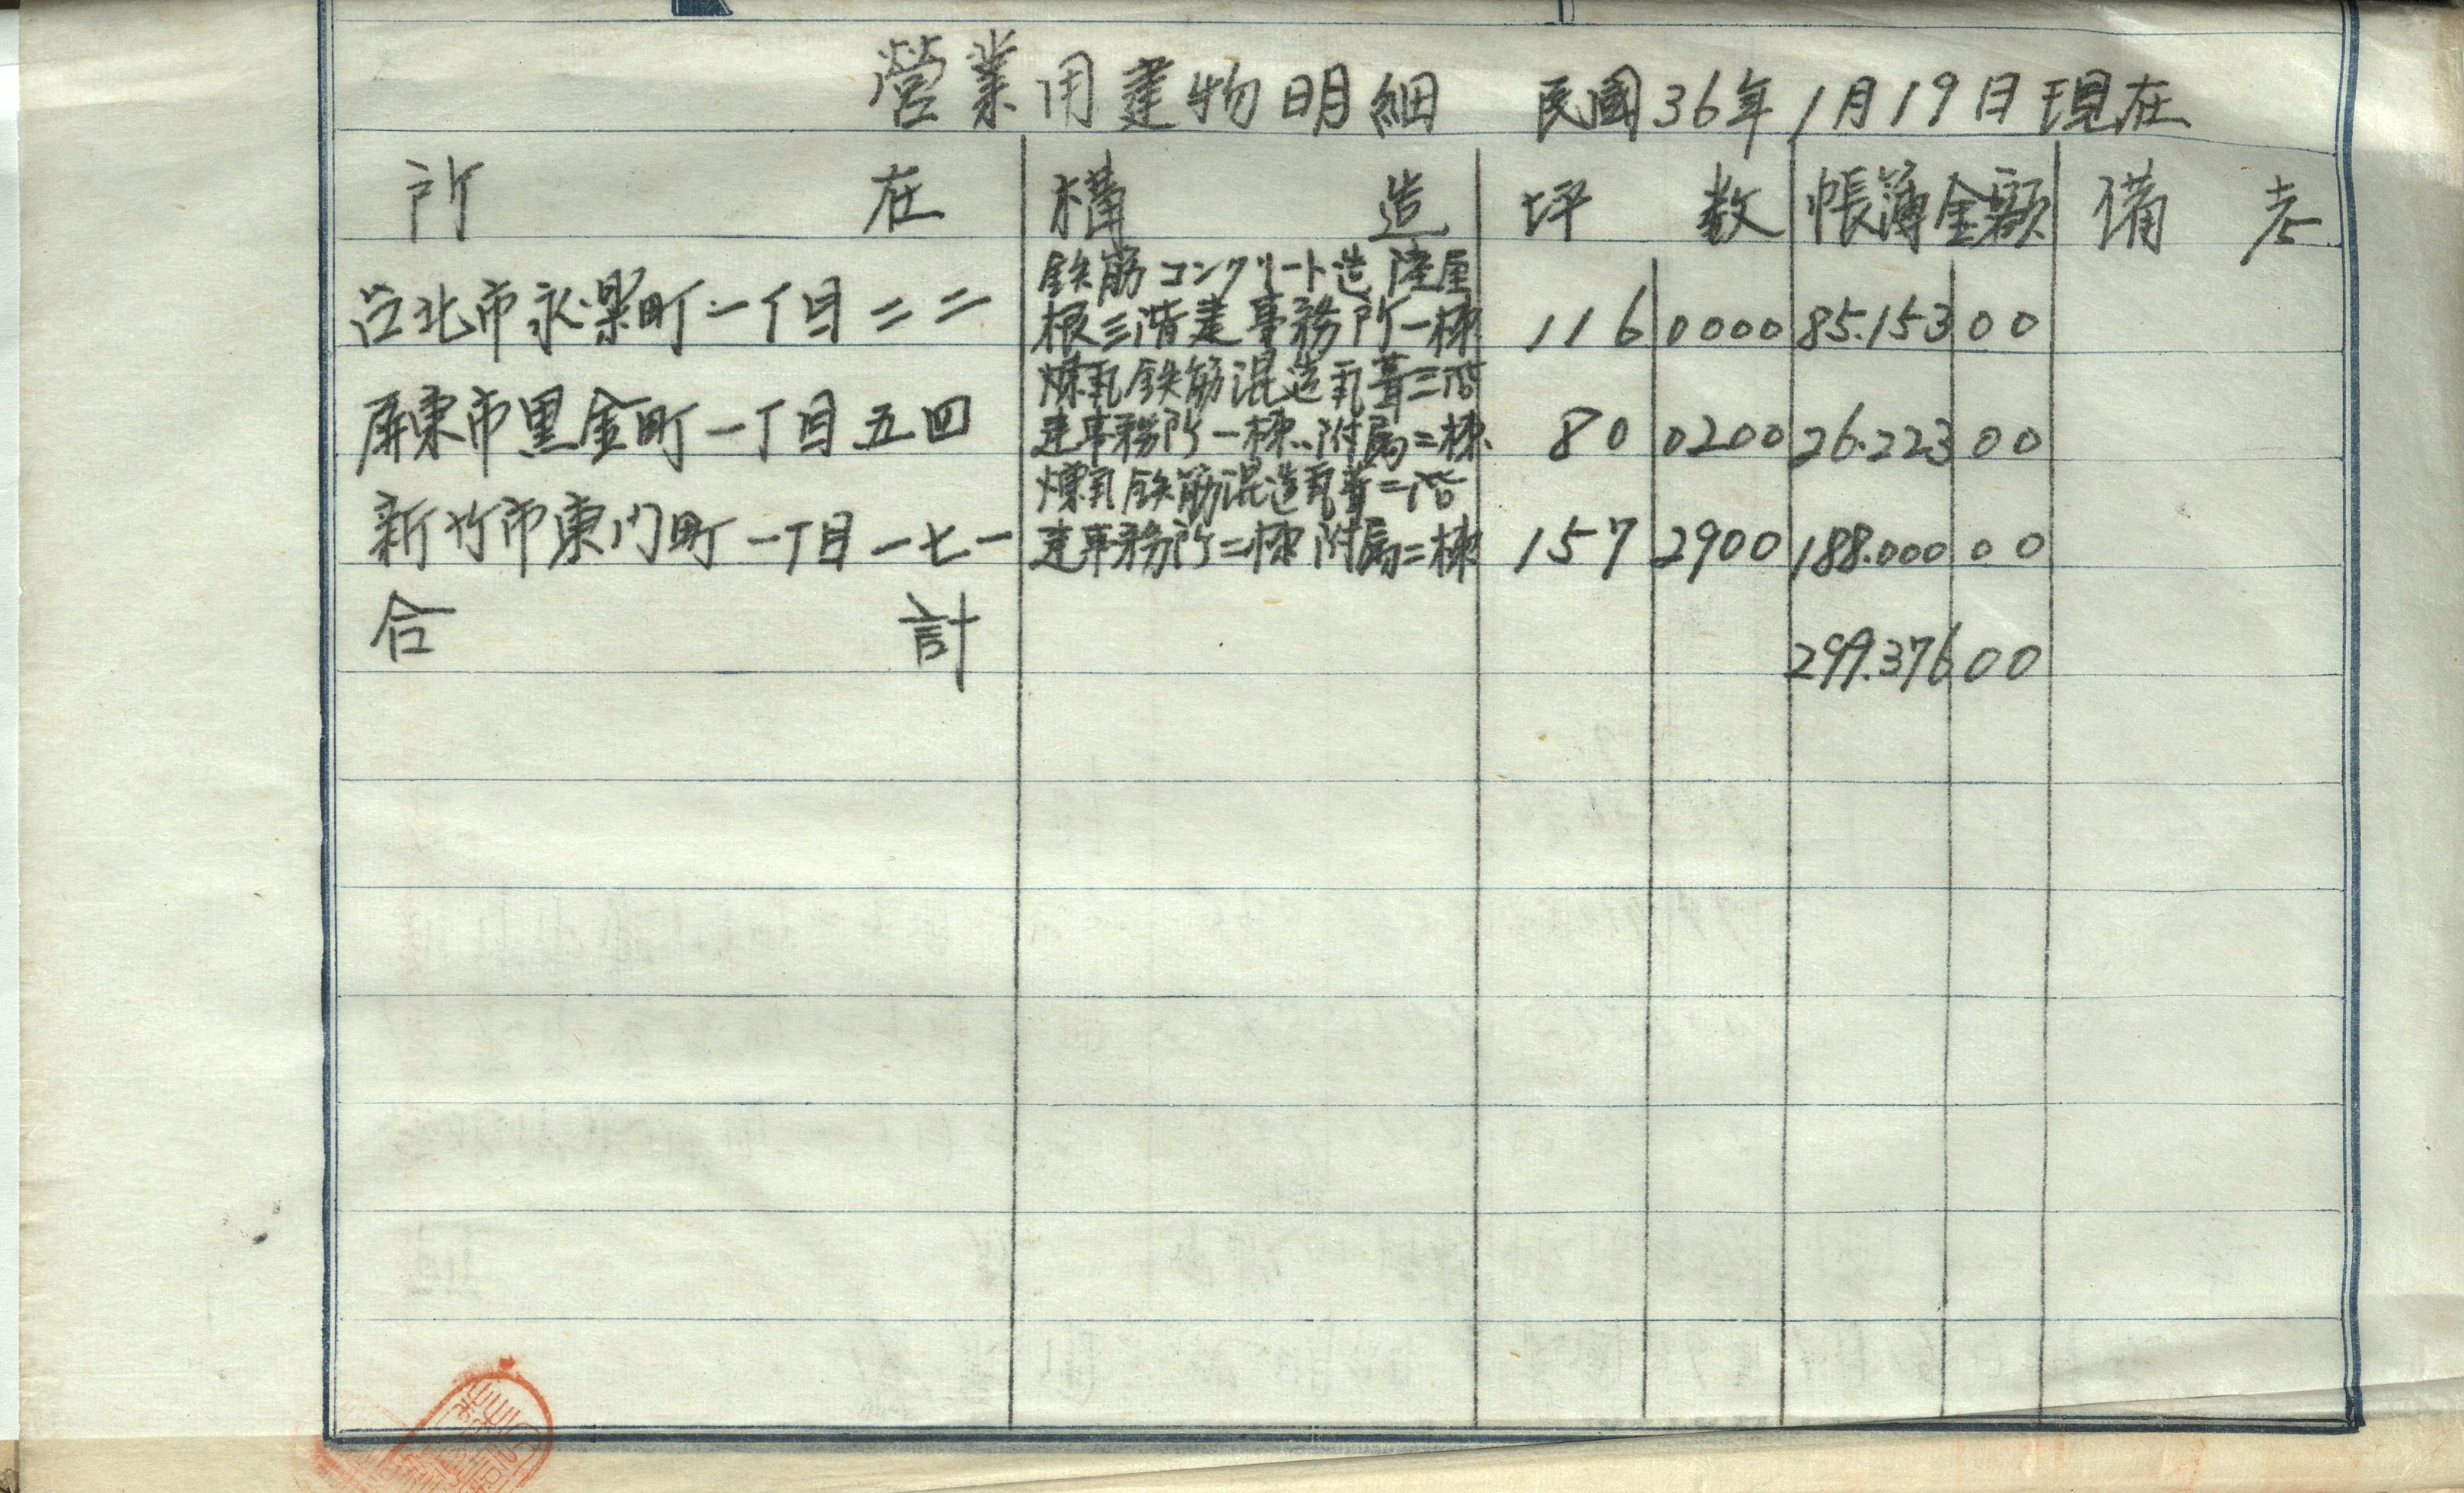 營業用建物明細 民國36年1月19日現在
所在 構造 坪数 帳簿金額 備考
台北市永樂町一丁目二二 鉄筋コンクリート造陸屋根三階建事務所一棟 116 0000 85.153 00
屏東市黒金町一丁目五四 煉瓦鉄筋混造瓦葺二階建事務所一棟、附属二棟 80 0200 26.223 00
新竹市東門町一丁目一七一 煉瓦鉄筋混造瓦葺二階建事務所二棟附属二棟 157 2900 188.000 00
合計 299.376 00